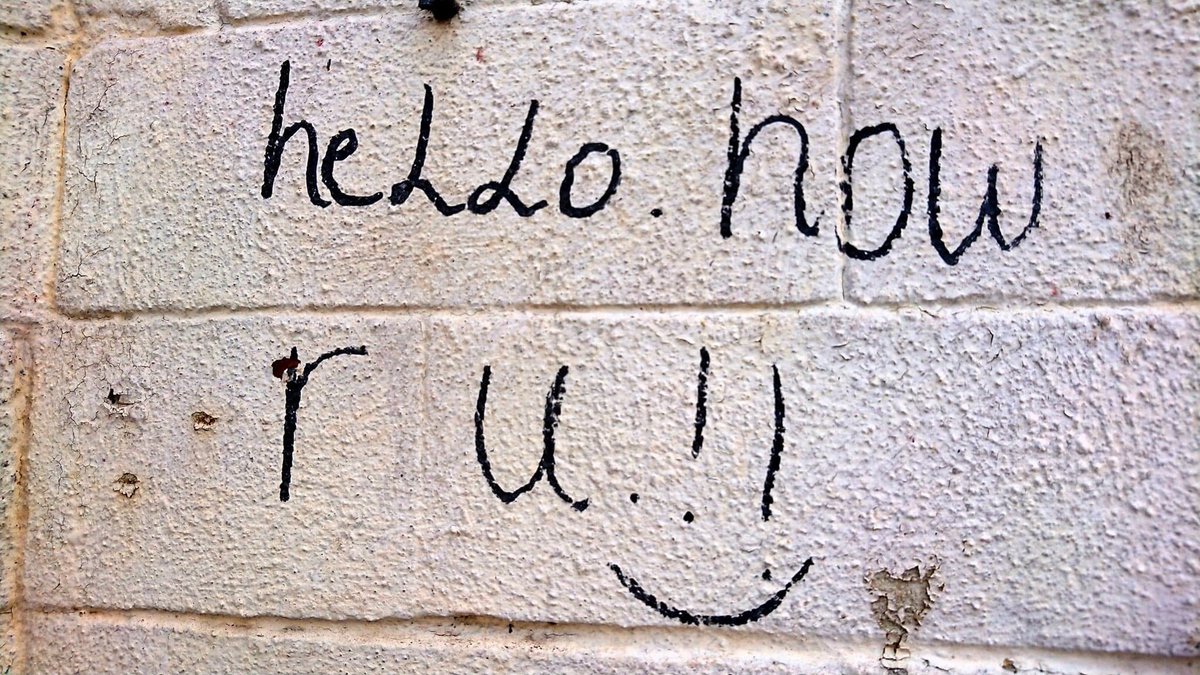 hello. how
r u.!!